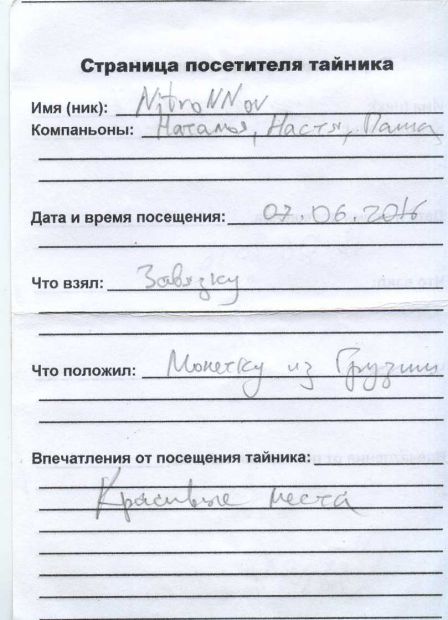 Страница посетителя тайника
Имя (ник): NitroNNov
Компаньоны: Наталья, Настя, Паша
Дата и время посещения: 07.06.2016
Что взял: Завязку
Что положил: Монетку из Грузии
Впечатления от посещения тайника:
Красивые места